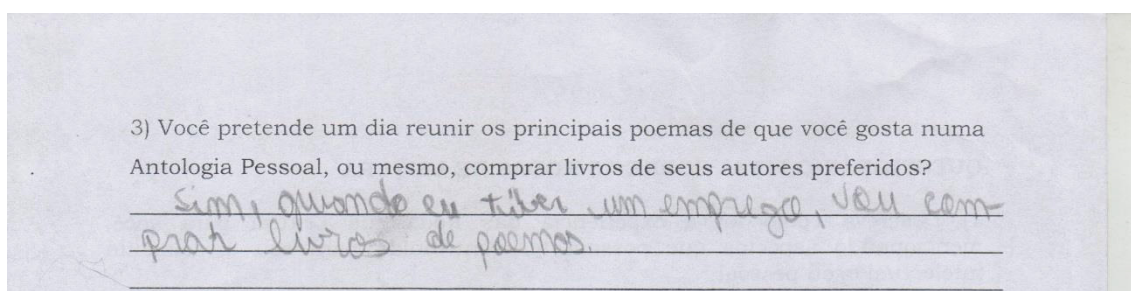 3) Você pretende um dia reunir os principais poemas de que você gosta numa
Antologia Pessoal, ou mesmo, comprar livros de seus autores preferidos?
Sim, quando eu tiver um emprego, vou com-
prar livros de poemas.